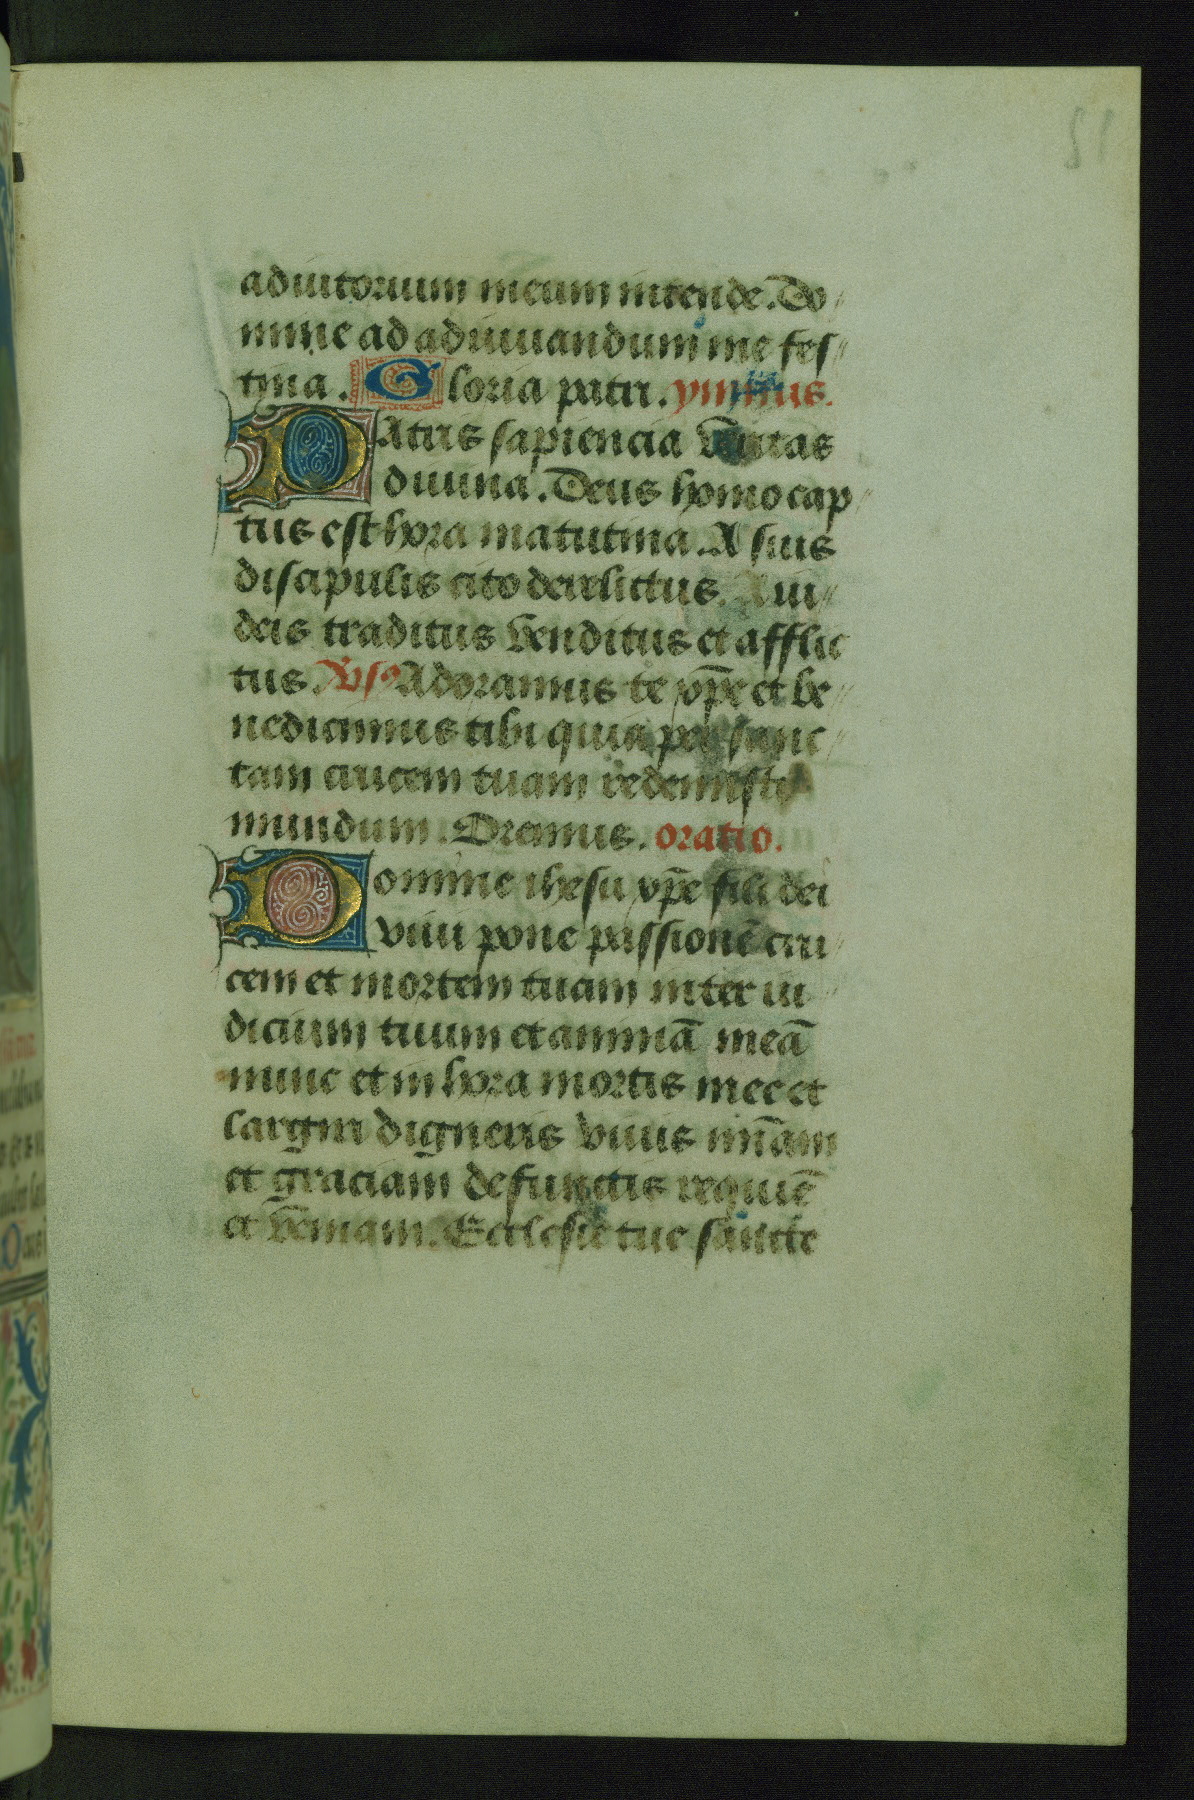 adiutorium meum intende. Do
mine ad adiuuandum me fes
tina. Gloria patri. ymnus.
PAtris sapiencia vẽritas
diuina. Deus homo cap
tus est hora matutina. A suis
discipulis cito derelictus. A iu
deis traditus venditus et afflic
tus. Vsꝰ Adoramus te xp̄e et be
nedicimus tibi quia per sanc
tam crucem tuam redemisti
mundum. Oremus. oratio.
Domine ihesu xp̄e fili dei
viui pone passionē cru
cem et mortem tuam inter iu
dicium tuum et animā meā
nunc et in hora mortis mee et
largiri digneris viuis mīam
et graciam defunctis requiē
et veniam. Ecclesie tue sancte